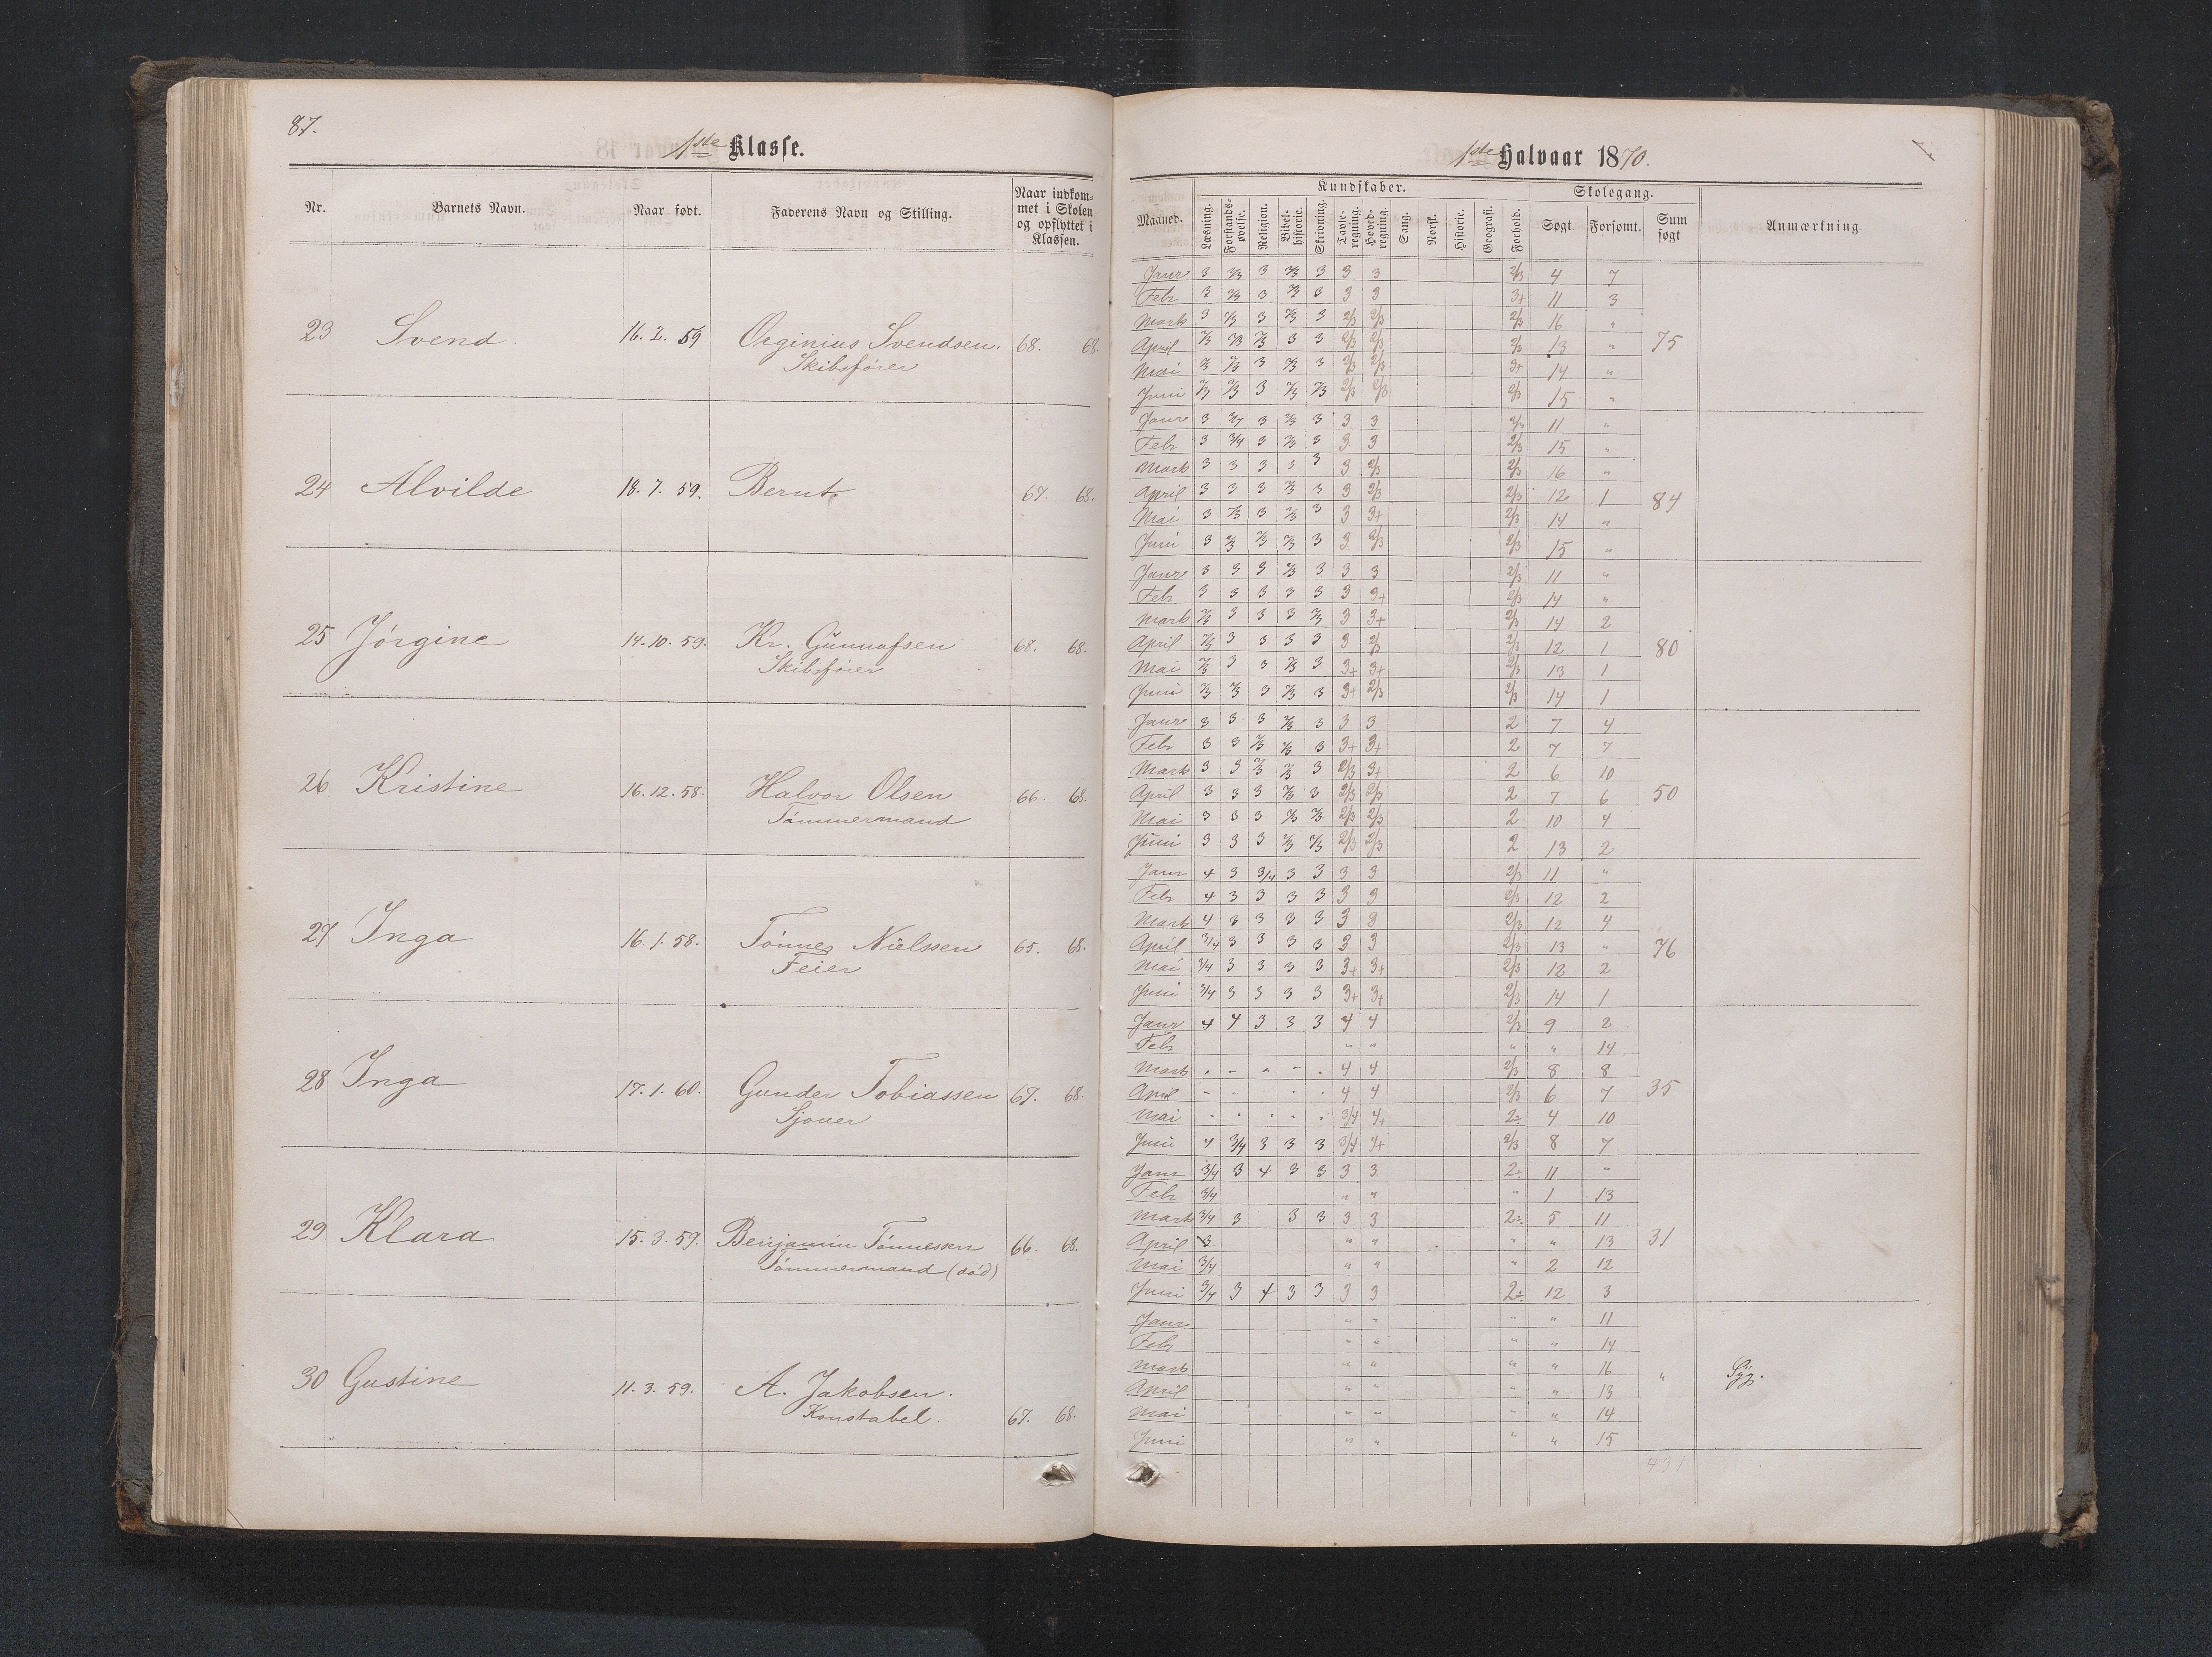 87.
1ste Klasse.
Nr. Barnets Navn. Naar født. Faderens Navn og Stilling. Naar indkommet i Skolen og opflyttet i Klassen.
23 Svend 16. 2. 59 Orginius Svendsen. 68. 68.
Skibsfører
24 Alvilde 18. 7. 59. Bernt 67. 68.
25 Jørgine 14. 10. 59. Kr. Gunnufsen 68. 68.
Skibsfører
26 Kristine 16. 12. 58. Halvor Olsen 66. 68.
Tømmermand
27 Inga 16. 1. 58. Tønnes Nielssen 65. 68.
Feier
28 Inga 17. 1. 60. Gunder Tobiassen 67. 68.
Sjouer
29 Klara 15. 3. 59. Benjamin Tønnessen 66. 68.
Tømmermand (død)
30 Gustine 11. 3. 59. A. Jakobsen. 67. 68.
Konstabel.
1ste Halvaar 1870.
Kundskaber. Skolegang.
Maaned. Læsning. Forstandsøvelse. Religion. Bibelhistorie. Skrivning. Tavleregning. Hovedregning. Sang. Norsk. Historie. Geografi. Forhold. Søgt Forsømt. Sum søgt Anmærkning
Janr 3 2/3 3 2/3 3 3 3 2/3 4 7
Febr 3 2/3 3 2/3 3 3 3 3+ 11 3
Marts 3 2/3 3 2/3 3 2/3 2/3 2/3 16 "
April 2/3 2/3 2/3 3 3 2/3 2/3 2/3 13 " 75
Mai 2/3 2/3 3 2/3 3 2/3 2/3 3+ 14 "
Juni 2/3 2/3 3 2/3 2/3 2/3 2/3 2/3 15 "
Janr 3 3/4 3 2/3 3 3 3 2/3 11 "
Febr 3 3/4 3 2/3 3 3 3 2/3 15 "
Marts 3 3 3 3 3 3 2/3 2/3 16 "
April 3 3 3 2/3 3 3 2/3 2/3 12 1 84
Mai 3 2/3 3 2/3 3 3 3+ 2/3 14 "
Juni 3 2/3 2/3 2/3 3 3 2/3 2/3 15 "
Janr 3 3 3 2/3 3 3 3 2/3 11 "
Febr 3 3 3 3 3 3 3+ 2/3 14 "
Marts 2/3 3 3 3 2/3 3 3+ 2/3 14 2
April 2/3 3 3 3 3 3 2/3 2/3 12 1 80
Mai 2/3 3 3 2/3 3 3+ 3+ 2/3 13 1
Juni 2/3 2/3 3 2/3 3 3+ 2/3 2/3 14 1
Janr 3 3 3 2/3 3 3 3 2 7 4
Febr 3 3 2/3 2/3 3 3+ 3+ 2 7 7
Marts 3 3 2/3 2/3 3 2/3 3+ 2 6 10
April 3 3 3 2/3 3 2/3 2/3 2 7 6 50
Mai 3 3 3 2/3 2/3 2/3 2/3 2 10 4
Juni 3 3 3 2/3 2/3 2/3 2/3 2 13 2
Janr 4 3 3/4 3 3 3 3 2/3 11 "
Febr 4 3 3 3 3 3 3 2/3 12 2
Marts 4 3 3 3 3 3 3 2/3 12 4
April 3/4 3 3 3 3 3 3 2/3 13 " 76
Mai 3/4 3 3 3 3 3+ 3+ 2/3 12 2
Juni 3/4 3 3 3 3 3+ 3+ 2/3 14 1
Janr 4 4 3 3 3 4 4 2/3 9 2
Febr " " " " 14
Marts " " " " " 4 4 2/3 8 8
April " " " " 4 4 2/3 6 7 35
Mai " " " " " 3/4 4+ 2÷ 4 10
Juni 4 3/4 3 3 3 3/4 4+ 2/3 8 7
Janr 3/4 3 4 3 3 3 3 2÷ 11 "
Febr 3/4 " " " 1 13
Marts 3/4 3 3 3 3 3 2÷ 5 11
April 3 " " " " 13 31
Mai 3/4 " " " 2 12
Juni 3/4 3 4 3 3 3 3 2÷ 12 3
Janr " " " " 11
Febr " " " " 14
Marts " " " " 16 " Syg.
April " " 13
Mai " " " " 14
Juni " " " " 15
431